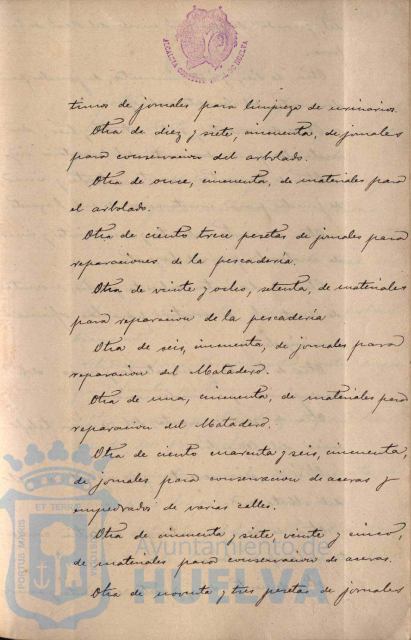 ALCALDIA CONSTITUCIONAL DE HUELVA
timos de jornales para limpieza de urinarios.
Otra de diez y siete, cincuenta, de jornales
para conservacion del arbolado.
Otra de once, cincuenta, de materiales para
el arbolado.
Otra de ciento trece pesetas de jornales para
reparaciones de la pescadería.
Otra de veinte y ocho, setenta, de materiales
para reparacion de la pescadería
Otra de seis, cincuenta, de jornales para
reparacion del Matadero.
Otra de una, cincuenta, de materiales para
reparacion del Matadero.
Otra de ciento cuarenta y seis, cincuenta,
de jornales para conservacion de aceras y
empedrados de varias calles.
Otra de cincuenta y siete, veinte y cinco,
de materiales para conservacion de aceras.
Otra de noventa y tres pesetas de jornales
PORTUS MARIS ET TERRAE CUSTODIA
Ayuntamiento de
HUELVA